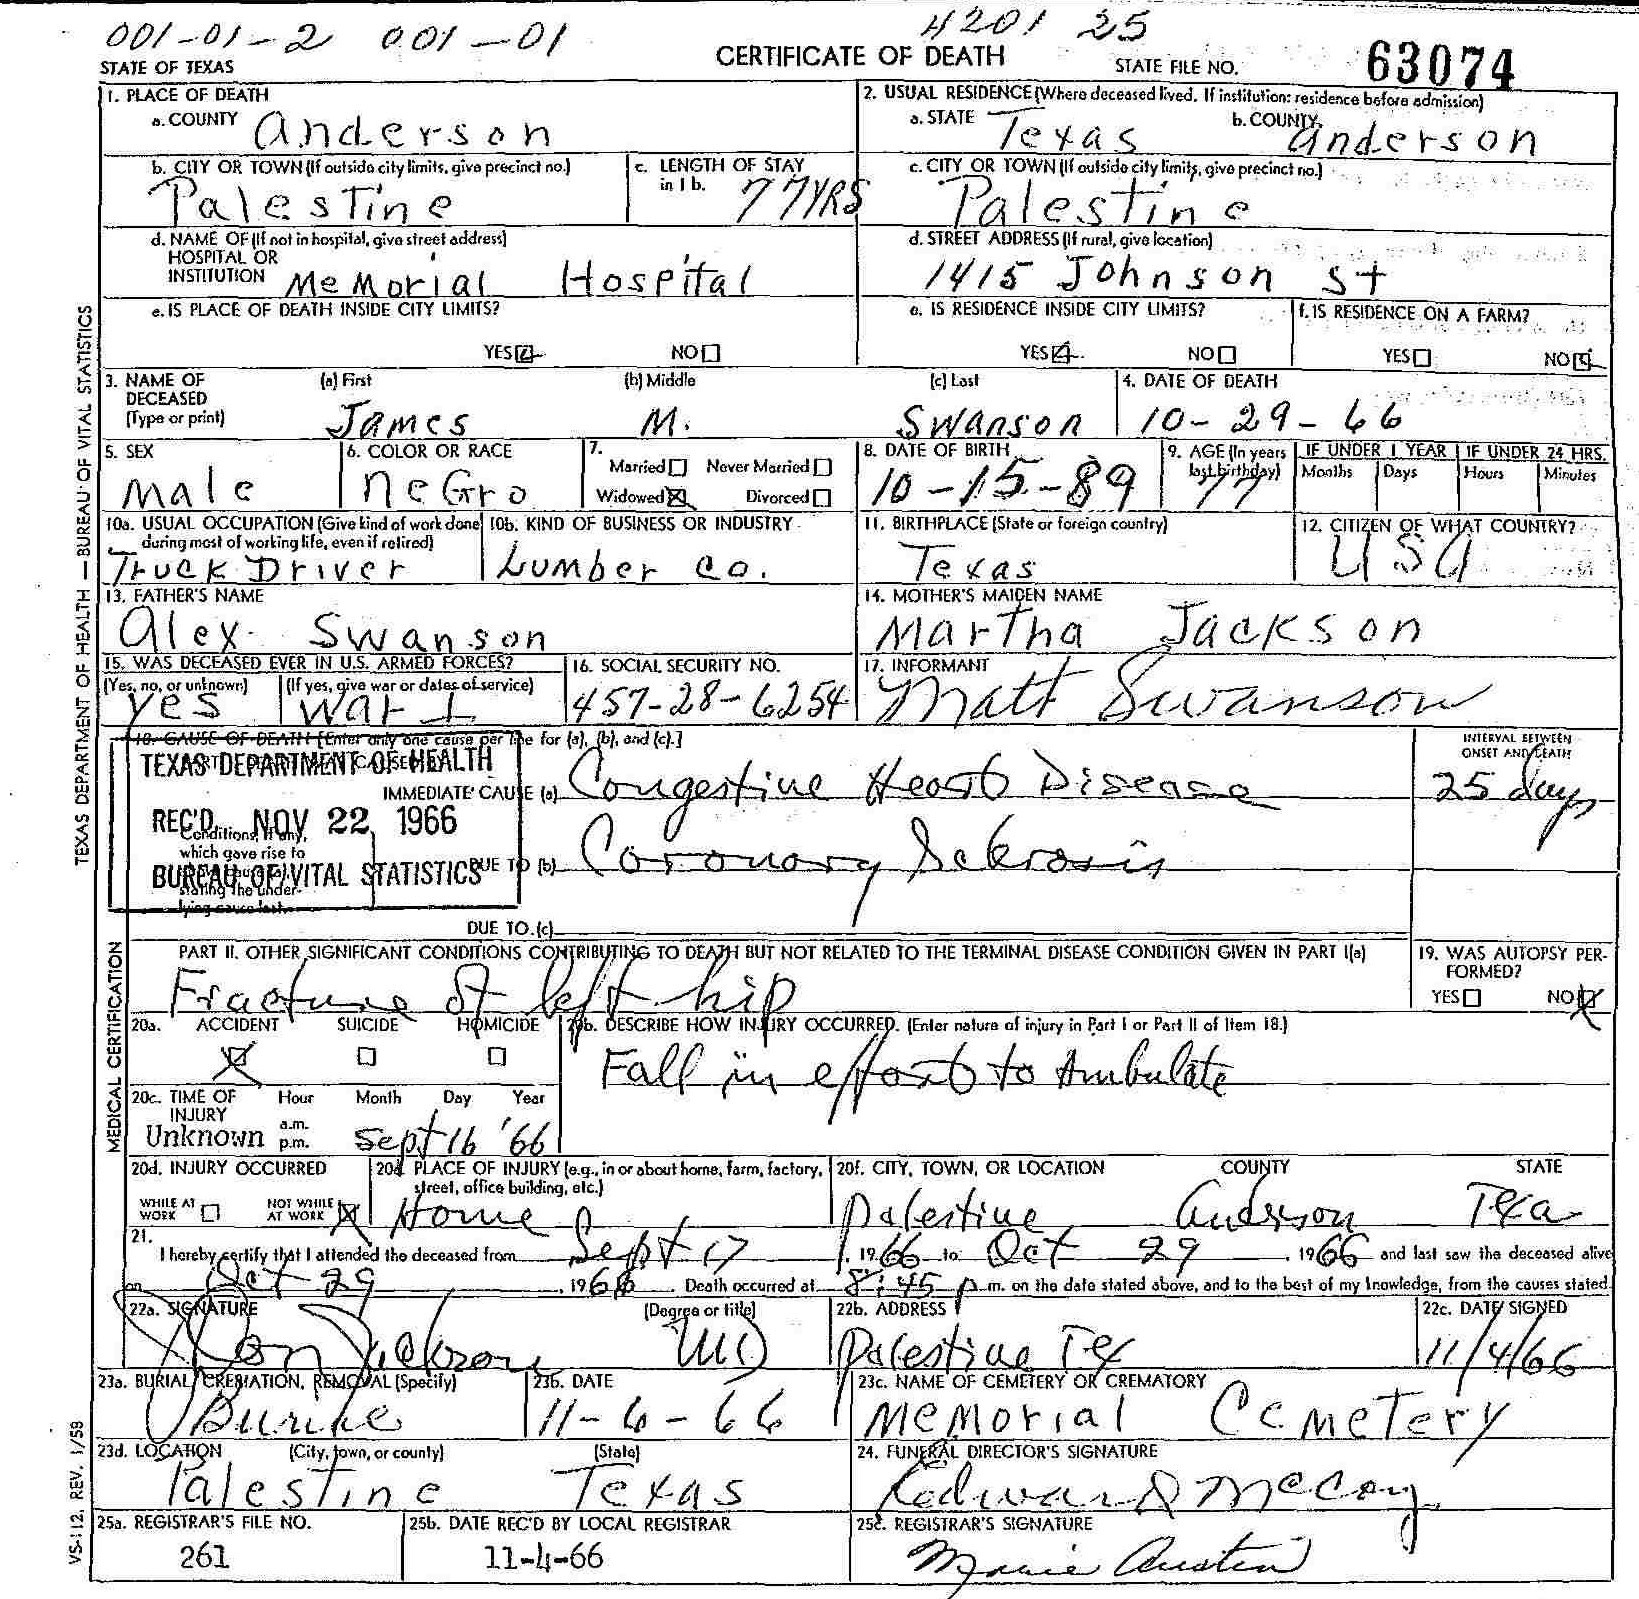 001-01-2 001-01 4201 25
STATE OF TEXAS CERTIFICATE OF DEATH STATE FILE NO. 63074
1. PLACE OF DEATH
a. COUNTY Anderson
2. USUAL RESIDENCE (Where deceased lived. If institution: residence before admission)
a. STATE Texas b. COUNTY Anderson
b. CITY OR TOWN (If outside city limits, give precinct no.) Palestine
c. LENGTH OF STAY in 1 b. 77 YRS
c. CITY OR TOWN (If outside city limits, give precinct no.) Palestine
d. NAME OF (If not in hospital, give street address)
HOSPITAL OR
INSTITUTION Memorial Hospital
d. STREET ADDRESS (If rural, give location)
1415 Johnson St
e. IS PLACE OF DEATH INSIDE CITY LIMITS?
YES NO
e. IS RESIDENCE INSIDE CITY LIMITS?
YES NO
f. IS RESIDENCE ON A FARM?
YES NO
3. NAME OF DECEASED (Type or print)
(a) First James (b) Middle M. (c) Last Swanson
4. DATE OF DEATH 10-29-66
5. SEX Male
6. COLOR OR RACE Negro
7. Married Never Married
Widowed Divorced
8. DATE OF BIRTH 10-15-89
9. AGE (In years last birthday) 77
IF UNDER 1 YEAR Months Days
IF UNDER 24 HRS. Hours Minutes
10a. USUAL OCCUPATION (Give kind of work done during most of working life, even if retired)
Truck Driver
10b. KIND OF BUSINESS OR INDUSTRY
Lumber Co.
11. BIRTHPLACE (State or foreign country)
Texas
12. CITIZEN OF WHAT COUNTRY?
USA
13. FATHER'S NAME
Alex Swanson
14. MOTHER'S MAIDEN NAME
Martha Jackson
15. WAS DECEASED EVER IN U.S. ARMED FORCES?
(Yes, no, or unknown) (If yes, give war or dates of service)
Yes War I
16. SOCIAL SECURITY NO.
457-28-6254
17. INFORMANT
Matt Swanson
18. CAUSE OF DEATH [Enter only one cause per line for (a), (b), and (c).]
TEXAS DEPARTMENT OF HEALTH
REC'D NOV 22 1966
BUREAU OF VITAL STATISTICS
IMMEDIATE CAUSE (a) Congestive Heart Disease
INTERVAL BETWEEN ONSET AND DEATH
25 days
Conditions, if any,
which gave rise to
stating the under-
lying cause last.
DUE TO (b) Coronary Sclerosis
DUE TO (c)
PART II. OTHER SIGNIFICANT CONDITIONS CONTRIBUTING TO DEATH BUT NOT RELATED TO THE TERMINAL DISEASE CONDITION GIVEN IN PART I(a)
Fracture of left hip
19. WAS AUTOPSY PERFORMED?
YES NO
20a. ACCIDENT SUICIDE HOMICIDE
20b. DESCRIBE HOW INJURY OCCURRED. (Enter nature of injury in Part I or Part II of Item 18.)
Fall in effort to Ambulate
20c. TIME OF INJURY Hour Month Day Year
a.m.
Unknown p.m. Sept 16 '66
20d. INJURY OCCURRED
WHILE AT WORK NOT WHILE AT WORK
20e. PLACE OF INJURY (e.g., in or about home, farm, factory, street, office building, etc.)
Home
20f. CITY, TOWN, OR LOCATION COUNTY STATE
Palestine Anderson Texa
21.
I hereby certify that I attended the deceased from Sept 17, 1966 to Oct 29, 1966 and last saw the deceased alive
on Oct 29, 1966. Death occurred at 8:45 p.m. on the date stated above, and to the best of my knowledge, from the causes stated.
22a. SIGNATURE (Degree or title)
Jackson MD
22b. ADDRESS
Palestine Tex
22c. DATE SIGNED
11/4/66
23a. BURIAL, CREMATION, REMOVAL (Specify)
23b. DATE
11-6-66
23c. NAME OF CEMETERY OR CREMATORY
Memorial Cemetery
23d. LOCATION (City, town, or county) (State)
Palestine Texas
24. FUNERAL DIRECTOR'S SIGNATURE
Edward McCoy
25a. REGISTRAR'S FILE NO.
261
25b. DATE REC'D BY LOCAL REGISTRAR
11-4-66
25c. REGISTRAR'S SIGNATURE
Marie Austin
TEXAS DEPARTMENT OF HEALTH — BUREAU OF VITAL STATISTICS
MEDICAL CERTIFICATION
VS-112, REV. 1/58